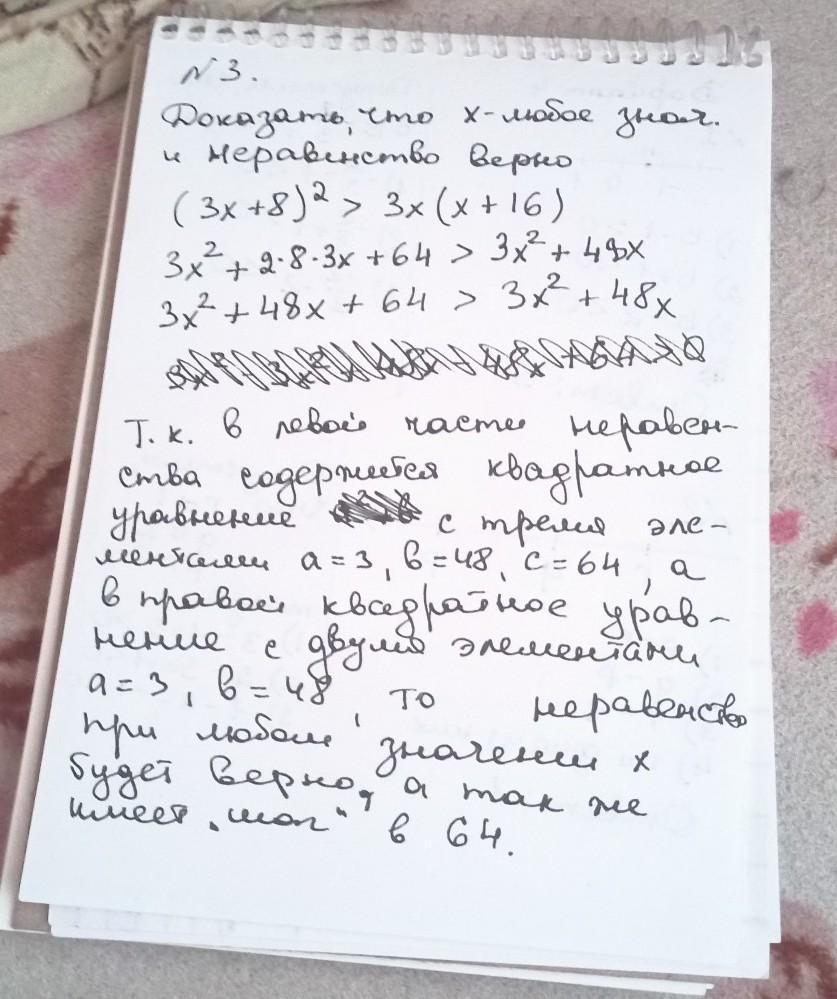 №3.
Доказать, что x-любое знач.
и неравенство верно
(3x+8)² > 3x(x+16)
3x² + 2·8·3x + 64 > 3x² + 48x
3x² + 48x + 64 > 3x² + 48x
Т.к. в левой части неравен-
ства содержится квадратное
уравнение с тремя эле-
ментами a=3, b=48, c=64, а
в правой квадратное урав-
нение с двумя элементами
a=3, b=48, то неравенство
при любом значении x
будет верно, а так же
имеет „шаг“ в 64.